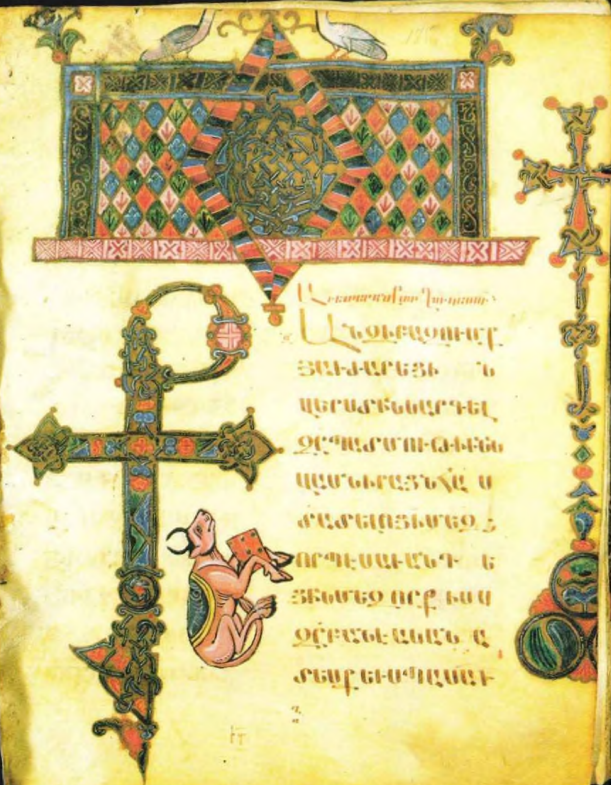 Աւետարան ըստ Ղուկասու
ՔԱՆԶԻ ԲԱԶՈՒՄՔ
ՅԱՒԺԱՐԵՑԻՆ
ՎԵՐՍՏԻՆ ԿԱՐԳԵԼ
ԶՊԱՏՄՈՒԹԻՒՆ
ՎԱՍՆ ԻՐԱՑՆ ՀԱՍ
ՏԱՏԵԼՈՑ Ի ՄԵԶ
ՈՐՊԷՍ ԱՒԱՆԴԵ
ՑԻՆ ՄԵԶ ՈՐՔ ԻՍԿ
ԶԲԱՆԷ ԱԿԱՆԱ
ՏԵՍՔ ԵՒ ՍՊԱՍԱՒ